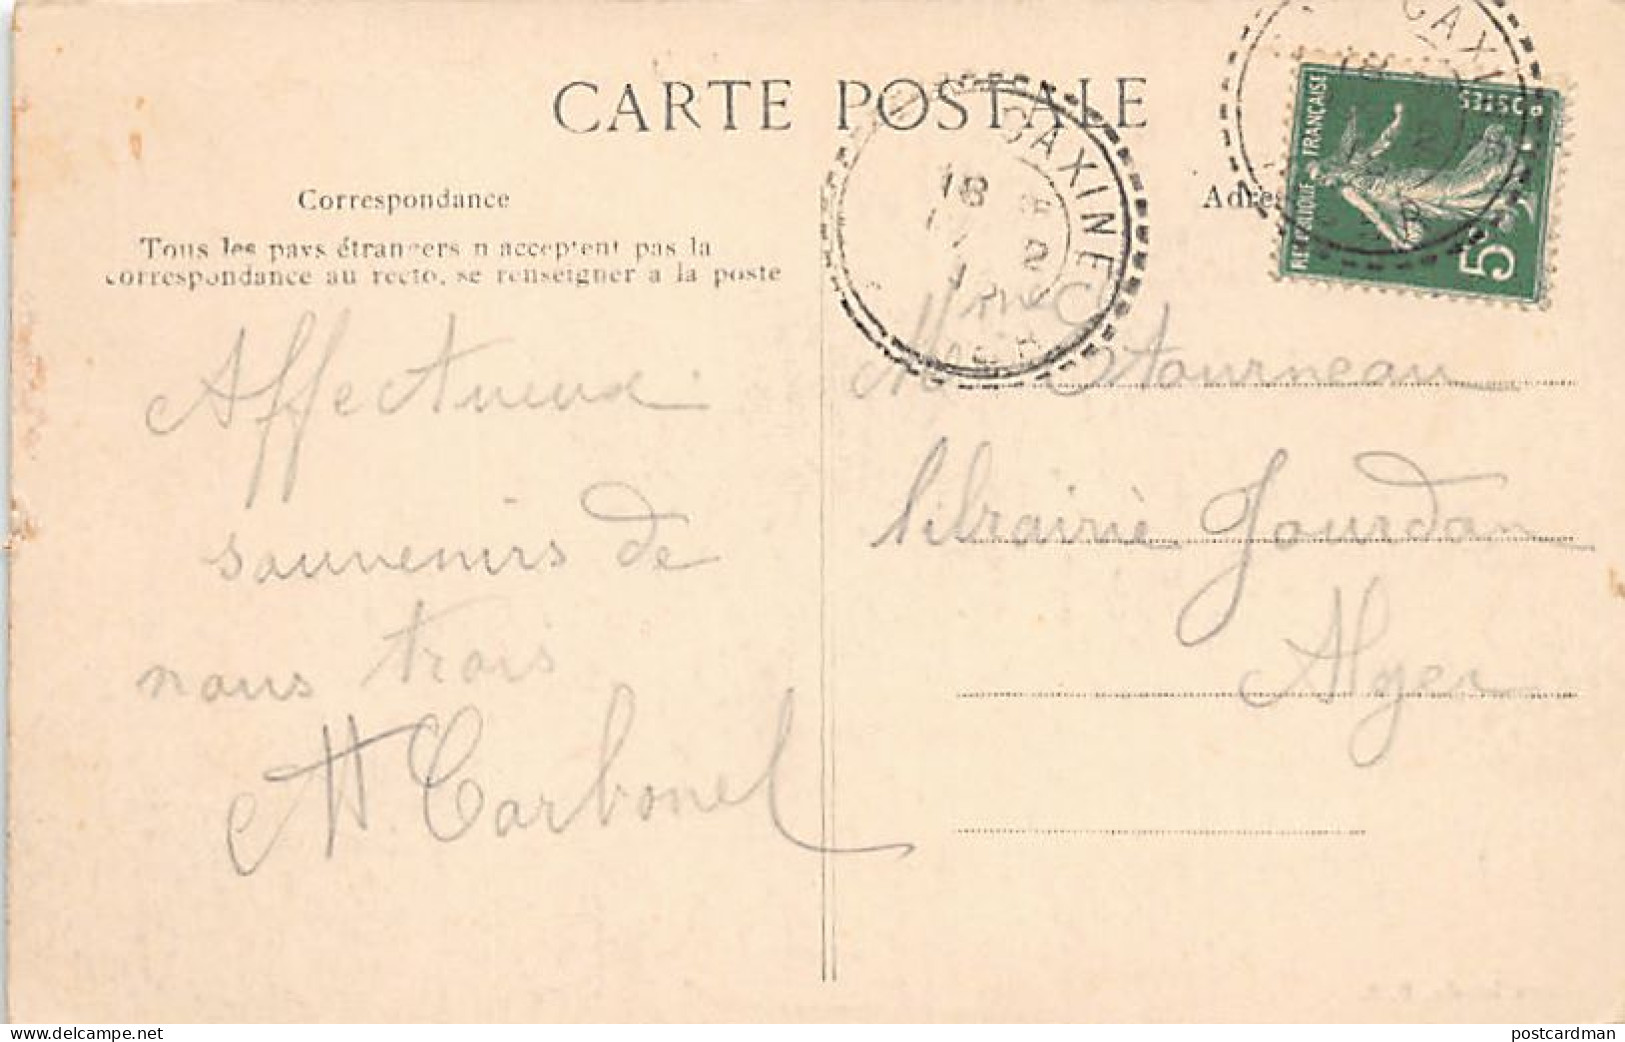 CARTE POSTALE
Correspondance
Tous les pays étrangers n'acceptent pas la
correspondance au recto, se renseigner a la poste
Affectueux
souvenirs de
nous trois
Carbonel
CAXINE
18
2
librairie Jourdan
Alger
REPUBLIQUE FRANÇAISE
POSTES
5c
www.delcampe.net
postcardman